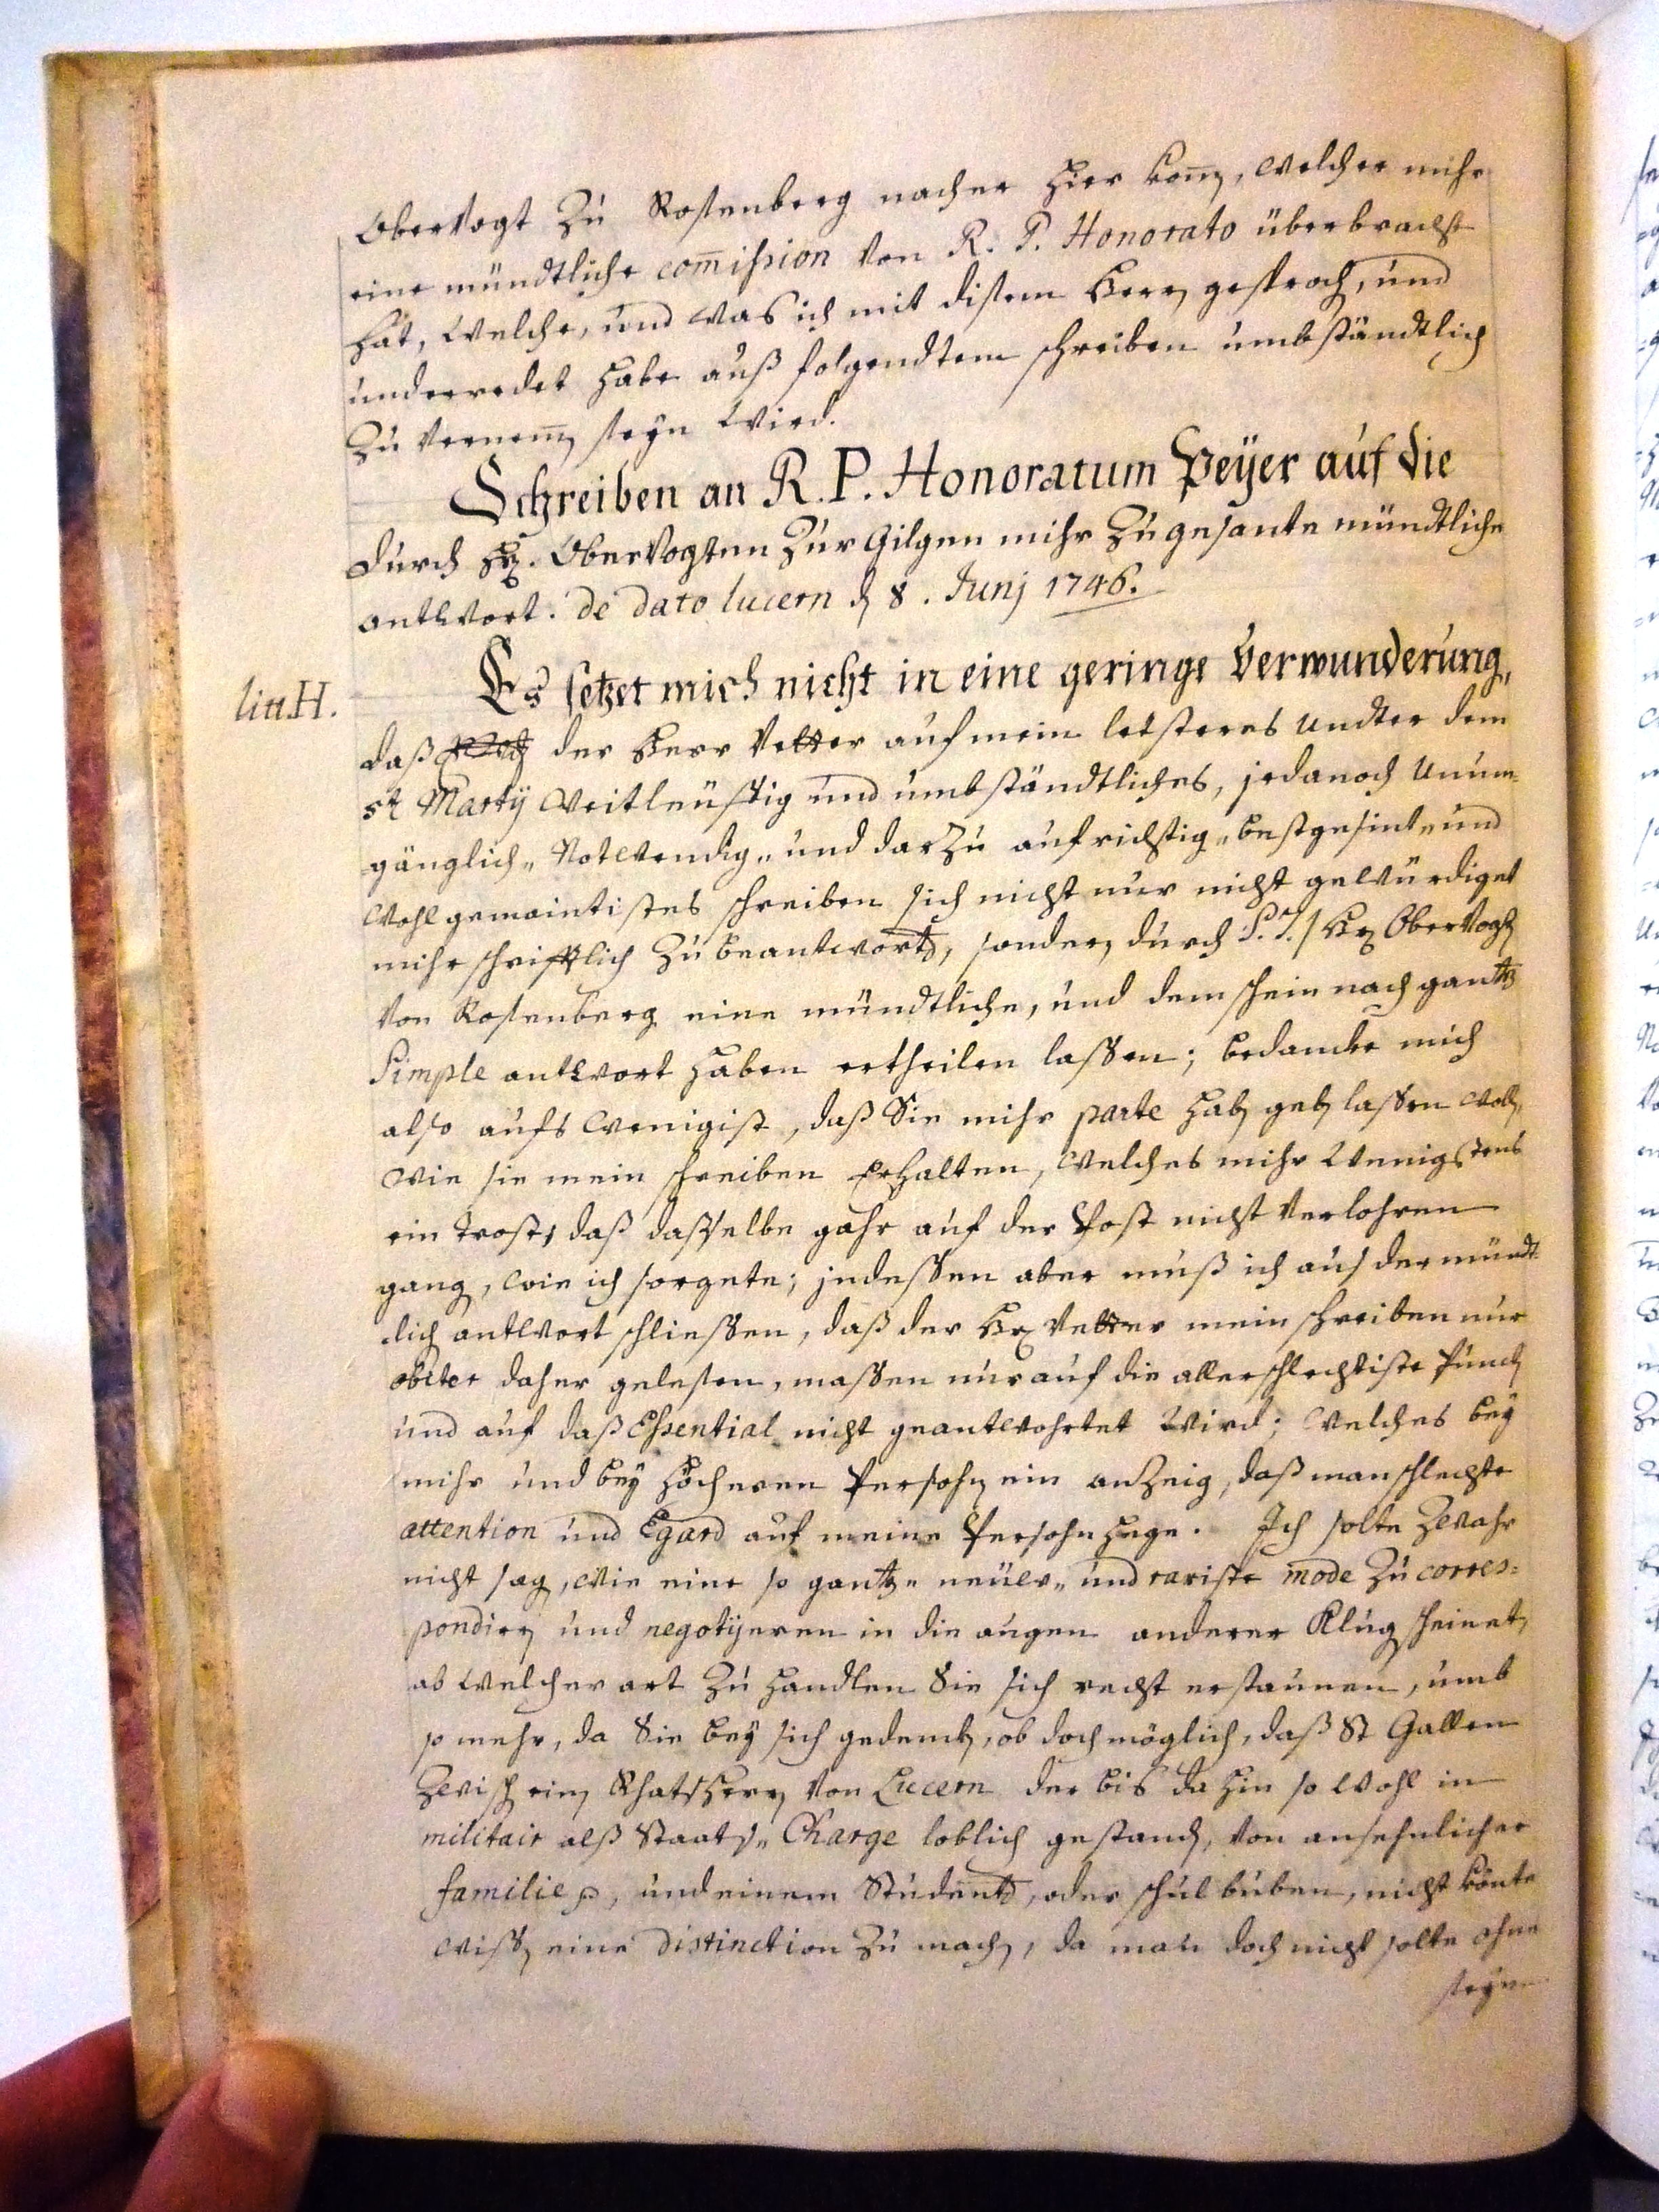 Obervogt Zu Rosenberg nacher hier kom̄en, welcher mihr
eine mündtliche com̄ission von R. P. Honorato überbracht
hat, welche, und was ich mit disem Herren gesproch, und
underredet habe auß folgendtem schreiben umbständtlich
Zu vernem̄en seyn wird.
Schreiben an R. P. Honoratum Peÿer auf die
durch Hr. Obervogten Zur Gilgen mihr Zugesante mündtliche
antwort. de dato lucern d 8. Junj 1746.
litt. H.
Es setzet mich nicht in eine geringe Verwunderung,
daß der Herr Vetter auf mein letsteres undter dem
Martij weitleüftig und umbständtliches, jedanoch unum-
gänglich„ Notwendig„ und darZu aufrichtig„ bestgesint„ und
wohlgemeintistes schreiben sich nicht nur nicht gewürdiget
mihr schrifftlich Zu beantworten, sondern durch S. T. / Hr Obervogt
von Rosenberg eine mündtliche, und dem schein nach gantz
Simple antwort haben ertheilen lassen; bedancke mich
also aufs wenigist, daß Sie mihr parte haben geben lassen wollen,
wie sie mein schreiben Erhalten, welches mihr wenigstens
ein trost, daß dasselbe gahr auf der Post nicht verlohren
gangen, wie ich sorgete; jndessen aber muß ich aus der mündt-
lich antwort schliessen, daß der Hr Vetter mein schreiben nur
obiter daher gelesen, massen nur auf die allerschlechtiste Puncten
und auf daß Essential nicht geantwohrtet wird; welches bey
mihr und bey höcheren Persohnen ein anzeig, daß man schlechte
attention und Egard auf meine Persohn hege. Ich solte Zwahr
nicht sagen, wie eine so gantz„ neüw„ und rariste mode Zu corres=
pondieren und negotijeren in die augen anderer Klug scheinet,
ab welcher art Zu handlen Sie sich recht erstaunen, umb
so mehr, da Sie bey sich gedencken, ob doch möglich, daß St Gallen
Zwischen einem Rhatsherren von Lucern der bis dahin so wohl in
militair alß Staats„ Charge loblich gestanden, von ansehnlicher
familie, und einem Studenten, oder schulbuben, nicht könte
wissen eine distinction Zu machen, da man doch nicht solte ohne
seyn